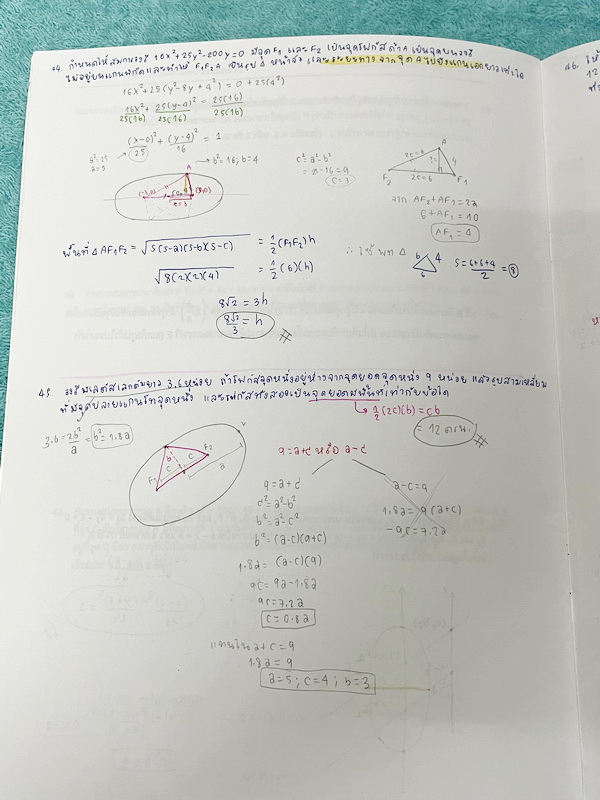 44 กำหนดให้สมการวงรี 16x²+25y²-200y=0 มีจุด F₁ และ F₂ เป็นจุดโฟกัส ถ้า A เป็นจุดบนวงรี
ไม่อยู่บนแกน และทำให้ F₁F₂A เป็นรูป Δ หน้าจั่ว และระยะทางจากจุด A ไปยังแกนเอกยาวเท่าใด
16x²+25(y²-8y+4²) = 0+25(4²)
16x²/25(16) + 25(y-4)²/25(16) = 25(16)/25(16)
(x-0)²/25 + (y-4)²/16 = 1
a²=25
a=5
b²=16; b=4
c²=a²-b²
=25-16=9
c=3
A
2c=6
4
F₂
2c=6
F₁
A
(-3,0)
(3,0)
c=3
จาก AF₂+AF₁=2a
6+AF₁=10
AF₁=4
พื้นที่ Δ AF₁F₂ = √S(S-a)(S-b)(S-c) = 1/2 (F₁F₂)h
∴ ใช้ พท Δ
6 4
6
S=6+6+4/2 = 8
√8(2)(2)(4) = 1/2 (6)(h)
8√2 = 3h
8√2/3 = h
45 วงรีมีเลตัสเรกตัมยาว 3.6 หน่วย ถ้าโฟกัสจุดหนึ่งอยู่ห่างจากจุดยอดจุดหนึ่ง 9 หน่วย แล้วรูปสามเหลี่ยม
ที่มีจุดปลายแกนโทจุดหนึ่ง และโฟกัสทั้งสองเป็นจุดยอดมีพื้นที่เท่ากับข้อใด
1/2 (2c)(b) = cb
= 12 ตรน.
3.6=2b²/a
b²=1.8a
V
b
F₂
c
c
F₁
a
9=a+c หรือ a-c
9=a+c
c²=a²-b²
b²=a²-c²
b²=(a-c)(a+c)
1.8a = (a-c)(9)
9c=9a-1.8a
9c=7.2a
c=0.8a
a-c=9
1.8a=9(a+c)
-9c=7.2a
แทนใน a+c=9
1.8a=9
a=5; c=4; b=3
46 ให้